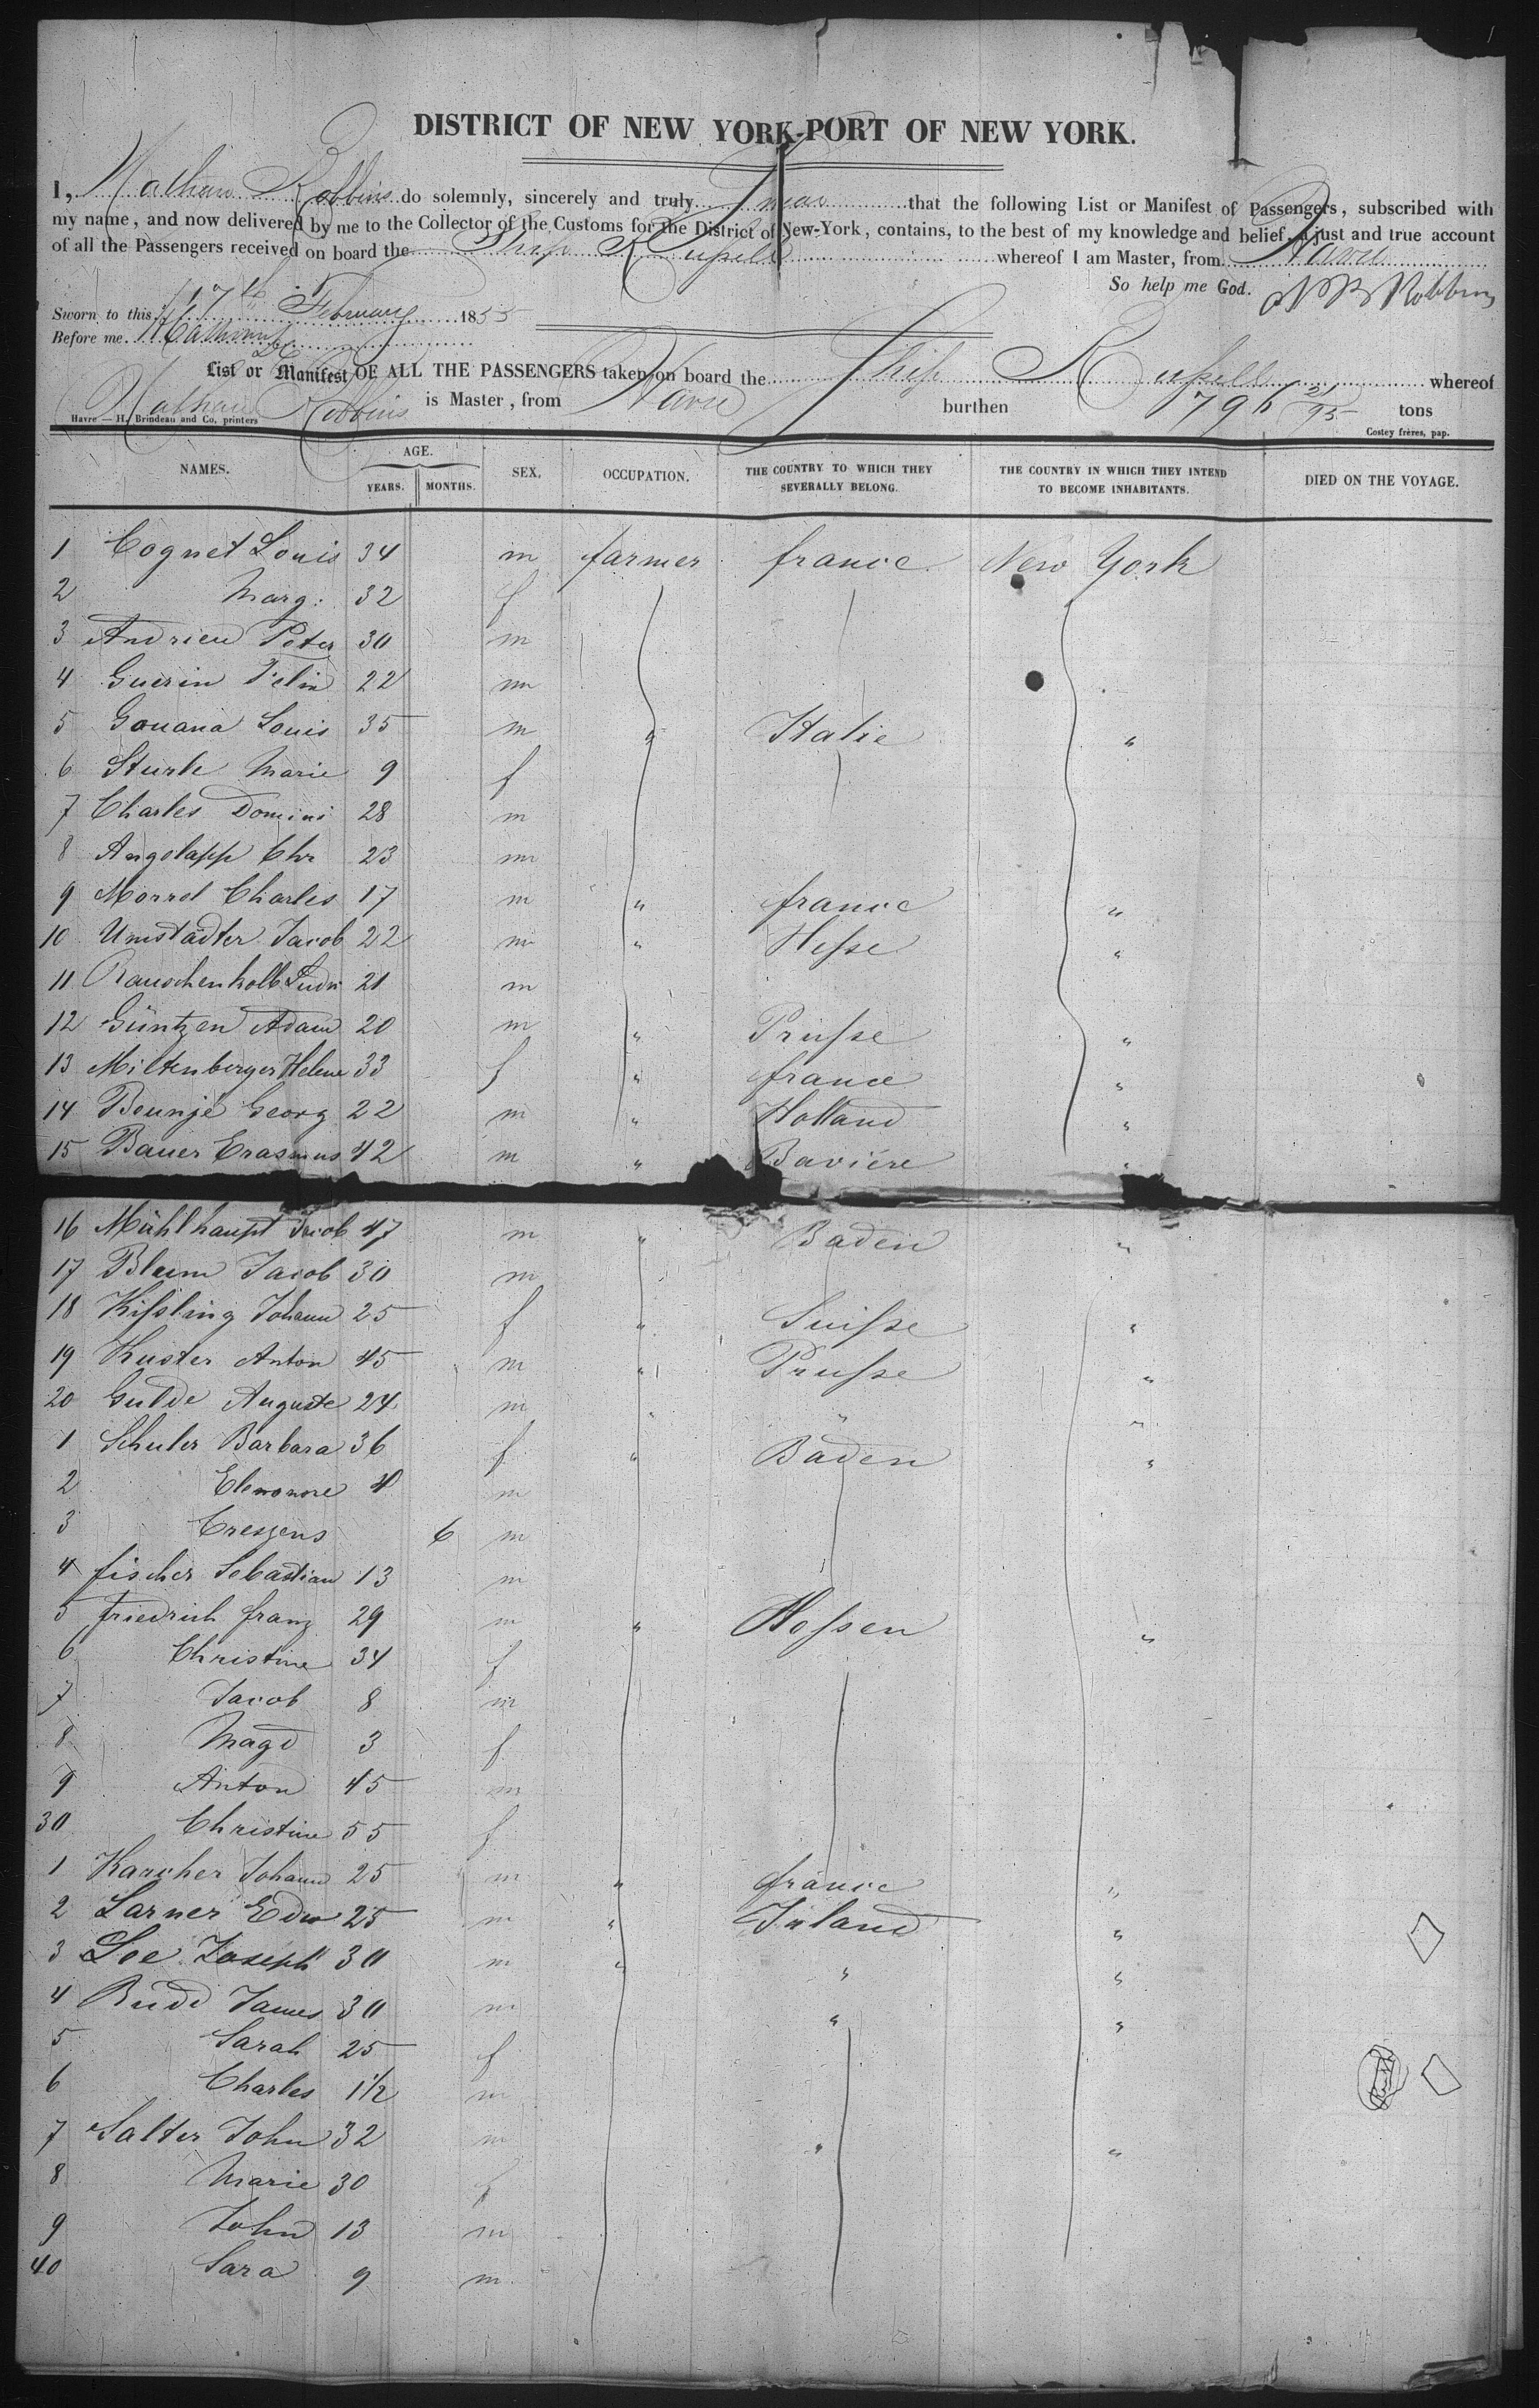 DISTRICT OF NEW YORK-PORT OF NEW YORK.
I, Nathan Robbins do solemnly, sincerely and truly swear that the following List or Manifest of Passengers, subscribed with
my name, and now delivered by me to the Collector of the Customs for the District of New-York, contains, to the best of my knowledge and belief, a just and true account
of all the Passengers received on board the Ship Russell whereof I am Master, from Havre
So help me God. N Robbins
Sworn to this 17th February 1855
Before me
List or Manifest OF ALL THE PASSENGERS taken on board the Ship Russell whereof
Nathan Robbins is Master, from Havre burthen 796 21/95 tons
Havre — H. Brindeau and Co, printers
Costey frères, pap.
NAMES. AGE. YEARS. MONTHS. SEX. OCCUPATION. THE COUNTRY TO WHICH THEY SEVERALLY BELONG. THE COUNTRY IN WHICH THEY INTEND TO BECOME INHABITANTS. DIED ON THE VOYAGE.
1 Cognet Louis 34 m farmer france New York
2 Marg: 32 f
3 Andrieu Peter 30 m
4 Guerin Felix 22 m
5 Gouana Louis 35 m " Italie "
6 Sturle Marie 9 f
7 Charles Domini 28 m
8 Angolapp Chr 23 m
9 Morrel Charles 17 m " france "
10 Umstädter Jacob 22 m " Hesse "
11 Rauschenkolb Ludw 21 m
12 Güntzen Adam 20 m " Prusse "
13 Miltenberger Helene 33 f " france "
14 Beunjé Georg 22 m " Holland "
15 Bauer Erasmus 42 m " Baviére "
16 Mühlhaupt Jacob 47 m " Baden "
17 Blum Jacob 30 m
18 Kissling Johann 25 f " Suisse "
19 Kuster Anton 45 m " Prusse "
20 Gulde Auguste 24 m " " "
1 Schuler Barbara 36 f " Baden "
2 Eleonore 4 m
3 Creszens 6 m
4 fischer Sebastian 13 m
5 friedrich franz 29 m " Hessen "
6 Christine 34 f
7 Jacob 8 m
8 Magd 3 f
9 Anton 45 m
30 Christine 55 f
1 Karcher Johann 25 m " france "
2 Larner Edw 25 m " Irland "
3 Lee Joseph 30 m " " "
4 Budd James 30 m " "
5 Sarah 25 f
6 Charles 1 1/2 m
7 Salter John 32 m " "
8 Marie 30 f
9 John 13 m
40 Sara 9 m